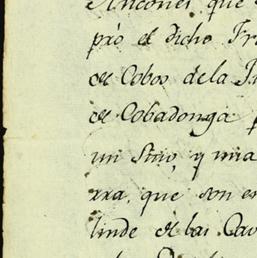 Rincones que
pró el dicho Fra
de Cobos de la I
de Cobadonga p
un Sitio, y una
rra, que son en
linde de las Cav